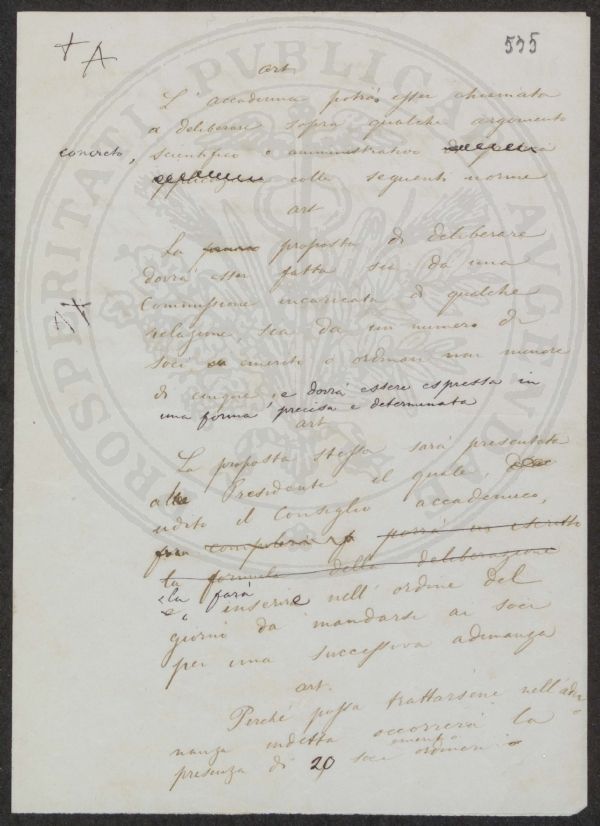 + A
535
art.
L'accademia potrà esser chiamata
a deliberare sopra qualche argomento
concreto, scientifico e amministrativo
colle seguenti norme
art
La proposta di deliberare
dovrà esser fatta sia da una
Commissione incaricata di qualche
relazione, sia da un numero di
soci emeriti o ordinari non minore
di cinque, e dovrà essere espressa in
una forma precisa e determinata
art
La proposta stessa sarà presentata
al Presidente il quale,
udito il Consiglio accademico,
la formula della deliberazione
e la farà inserire nell'ordine del
giorno da mandarsi ai soci
per una successiva adunanza
art.
Perché possa trattarsene nell'adu-
nanza indetta occorrerà la
presenza di 20 soci emeriti o ordinari
PROSPERITATI PVBLICAE AVGENDAE